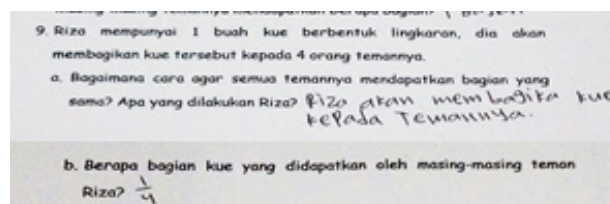 9. Riza mempunyai 1 buah kue berbentuk lingkaran, dia akan
membagikan kue tersebut kepada 4 orang temannya.
a. Bagaimana cara agar semua temannya mendapatkan bagian yang
sama? Apa yang dilakukan Riza? Riza akan membagika kue
kepada Temannya.
b. Berapa bagian kue yang didapatkan oleh masing-masing teman
Riza? 1/4